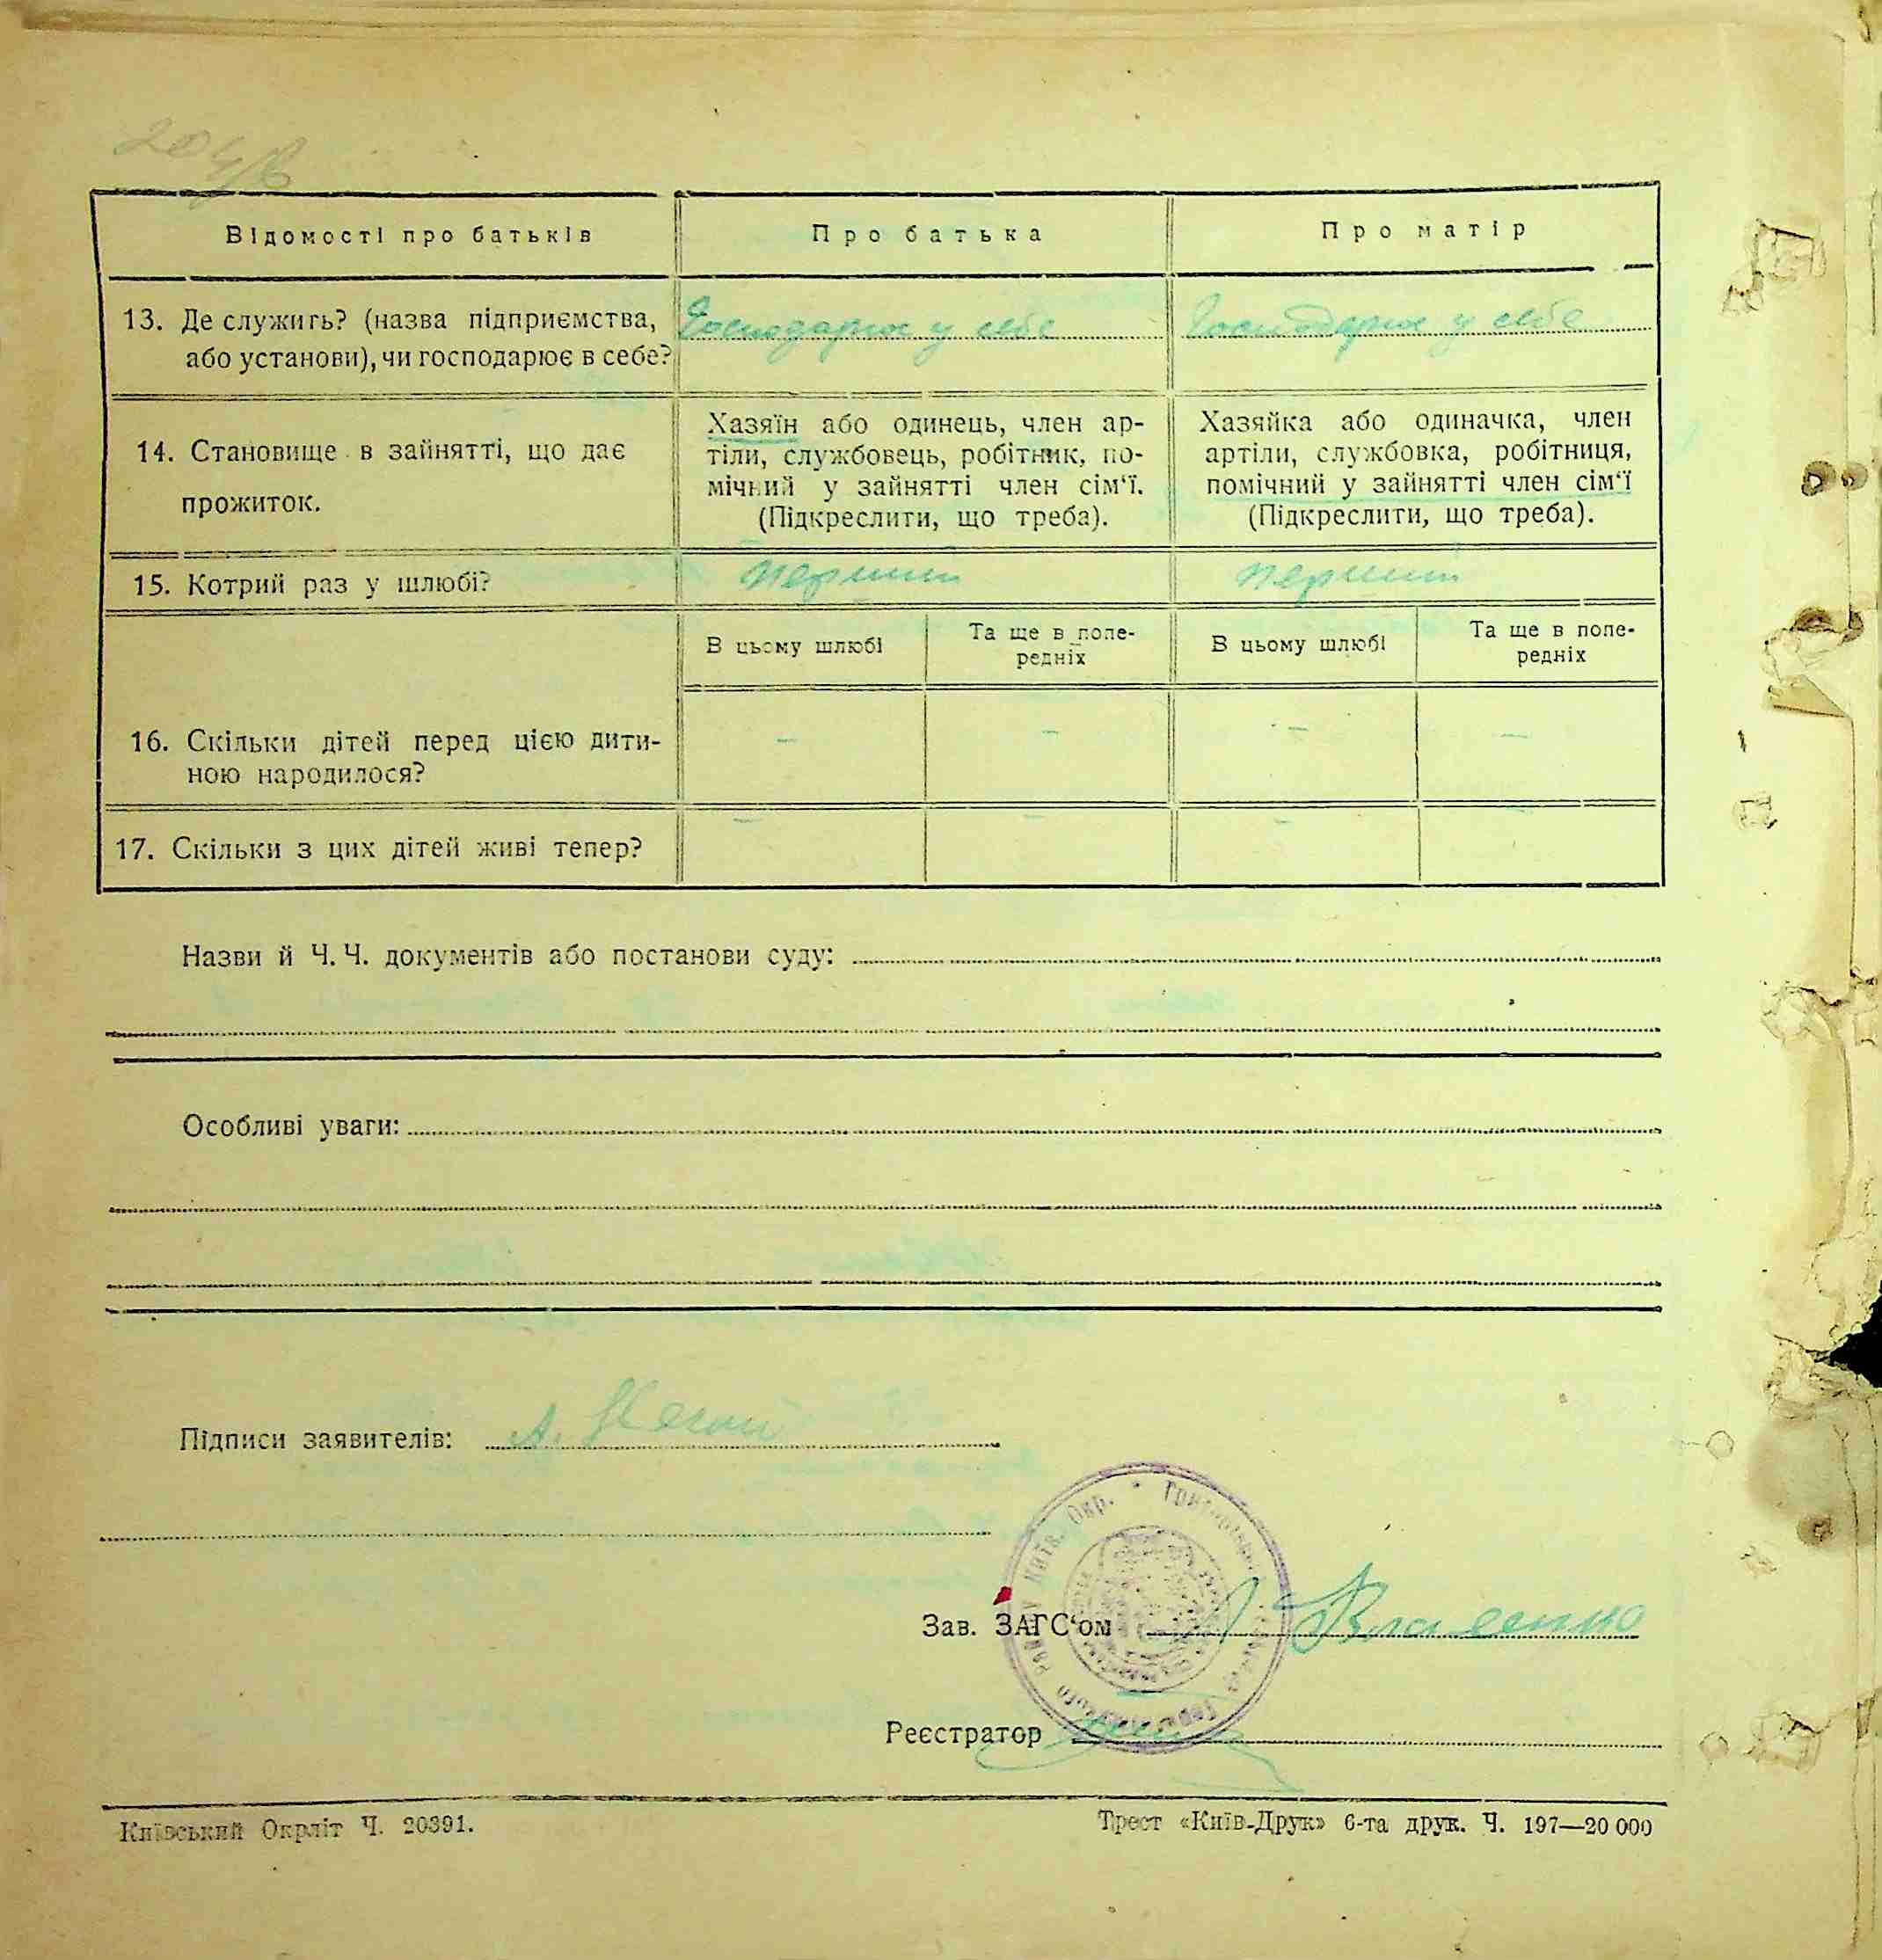 204/в
Відомості про батьків
Про батька
Про матір
13. Де служить? (назва підприємства,
або установи), чи господарює в себе?
Господарює у себе
Господарює у себе
14. Становище в зайнятті, що дає
прожиток.
Хазяїн або одинець, член ар-
тіли, службовець, робітник, по-
мічний у зайнятті член сім‘ї.
(Підкреслити, що треба).
Хазяйка або одиначка, член
артіли, службовка, робітниця,
помічний у зайнятті член сім‘ї
(Підкреслити, що треба).
15. Котрий раз у шлюбі?
перший
перший
В цьому шлюбі
Та ще в попе-
редніх
В цьому шлюбі
Та ще в попе-
редніх
16. Скільки дітей перед цією дити-
ною народилося?
– – – –
17. Скільки з цих дітей живі тепер?
– – – –
Назви й Ч. Ч. документів або постанови суду:
Особливі уваги:
Підписи заявителів: А.
Зав. ЗАГС‘ом
Реєстратор
Київський Окрліт Ч. 20391.
Трест «Київ-Друк» 6-та друк. Ч. 197—20 000